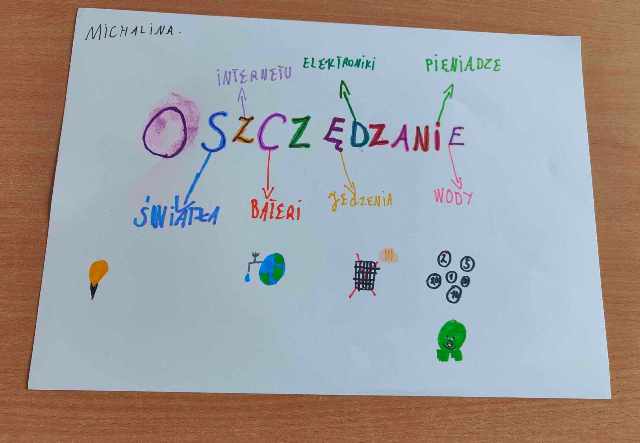 MICHALINA.
INTERNETU ELEKTRONIKI PIENIĄDZE
OSZCZĘDZANIE
ŚWIATŁA BATERI JEDZENIA WODY
2 5
1